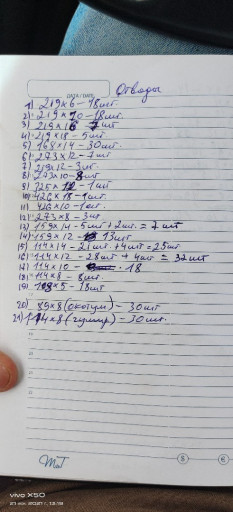 DATA / DATE:
Отводы
1) 219×6 – 18шт
2) 219×10 – 18шт
3) 219×16 – 7шт
4) 219×18 – 5шт
5) 168×14 – 30шт.
6) 273×12 – 7шт
7) 219×12 – 3шт
8) 273×10 – 8шт
9) 725×12 – 1шт
10) 426×18 – 1шт.
11) 426×10 – 1шт.
12) 273×8 – 3шт
13) 159×14 – 5шт + 2шт. = 7шт
14) 159×12 – 13шт
15) 114×14 – 21шт + 4шт = 25шт
16) 114×12 – 28шт + 4шт = 32шт
17) 114×10 – 18
18) 114×8 – 8шт
19) 108×5 – 18шт
20) 89×8 – 30шт
21) 114×8 – 30шт.
vivo X50